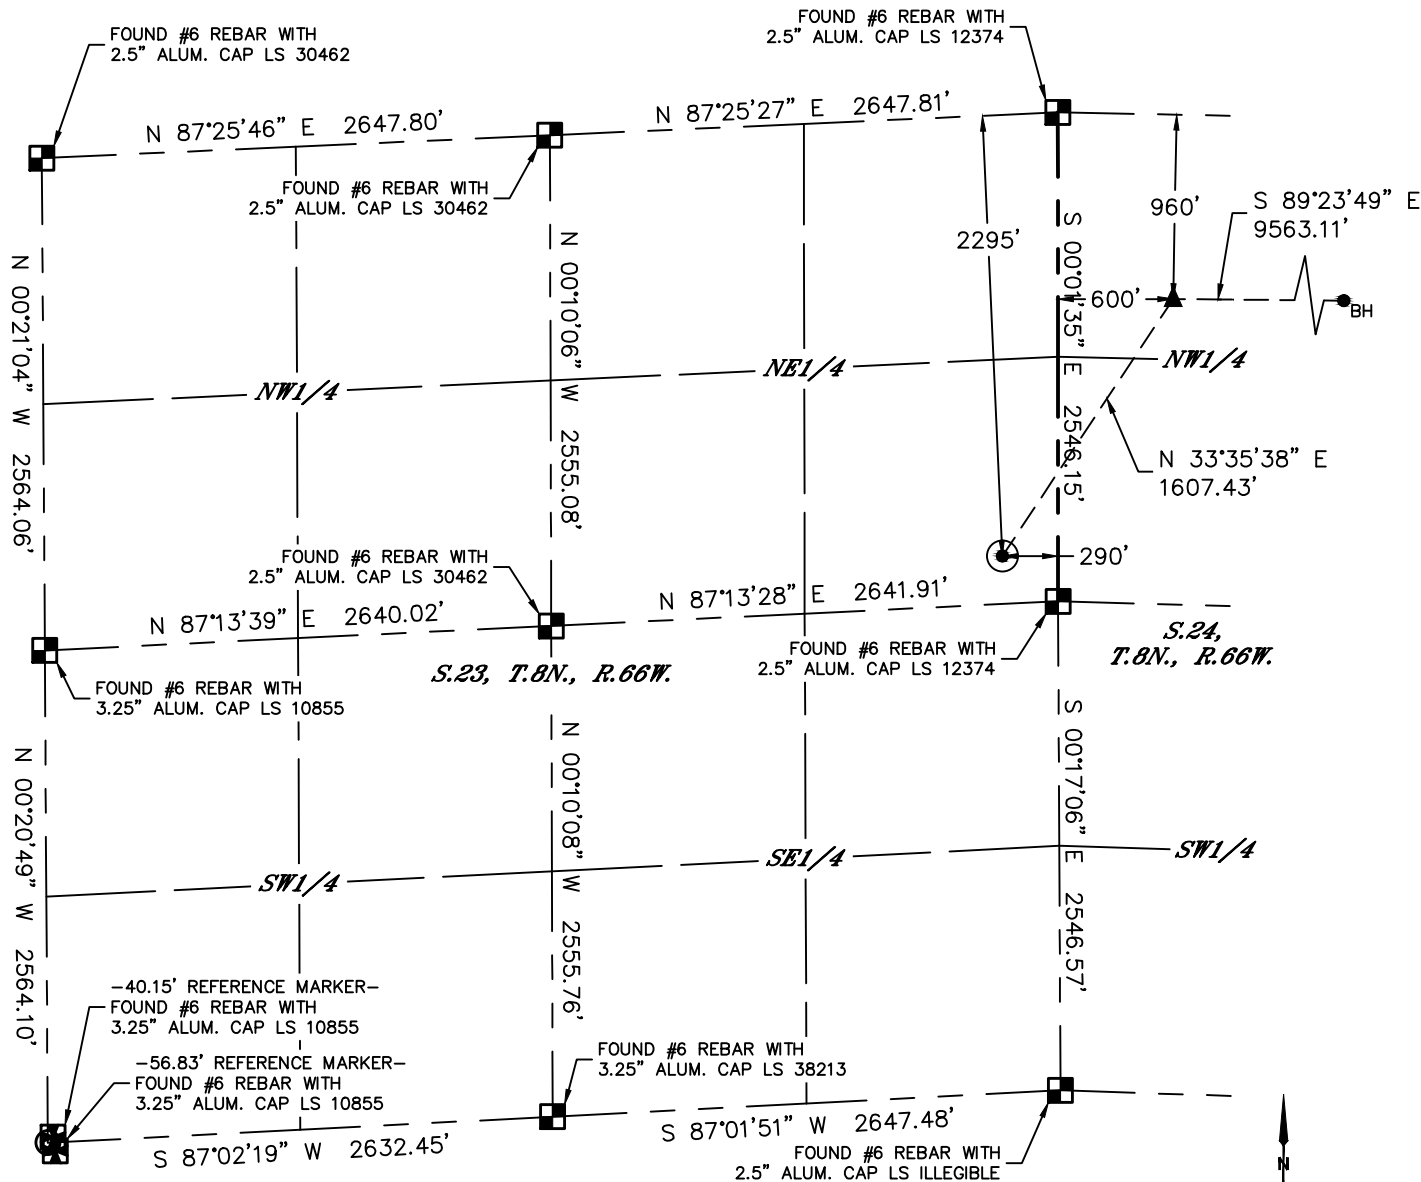 FOUND #6 REBAR WITH
2.5" ALUM. CAP LS 30462
FOUND #6 REBAR WITH
2.5" ALUM. CAP LS 12374
N 87°25'46" E 2647.80'
N 87°25'27" E 2647.81'
FOUND #6 REBAR WITH
2.5" ALUM. CAP LS 30462
2295'
960'
S 89°23'49" E
9563.11'
600'
BH
N 00°21'04" W 2564.06'
N 00°10'06" W 2555.08'
S 00°01'35" E 2546.15'
NW1/4
NE1/4
NW1/4
N 33°35'38" E
1607.43'
290'
FOUND #6 REBAR WITH
2.5" ALUM. CAP LS 30462
N 87°13'39" E 2640.02'
N 87°13'28" E 2641.91'
FOUND #6 REBAR WITH
2.5" ALUM. CAP LS 12374
S.24,
T.8N., R.66W.
S.23, T.8N., R.66W.
FOUND #6 REBAR WITH
3.25" ALUM. CAP LS 10855
N 00°20'49" W 2564.10'
N 00°10'08" W 2555.76'
S 00°17'06" E 2546.57'
SW1/4
SE1/4
SW1/4
-40.15' REFERENCE MARKER-
FOUND #6 REBAR WITH
3.25" ALUM. CAP LS 10855
-56.83' REFERENCE MARKER-
FOUND #6 REBAR WITH
3.25" ALUM. CAP LS 10855
FOUND #6 REBAR WITH
3.25" ALUM. CAP LS 38213
S 87°02'19" W 2632.45'
S 87°01'51" W 2647.48'
FOUND #6 REBAR WITH
2.5" ALUM. CAP LS ILLEGIBLE
N